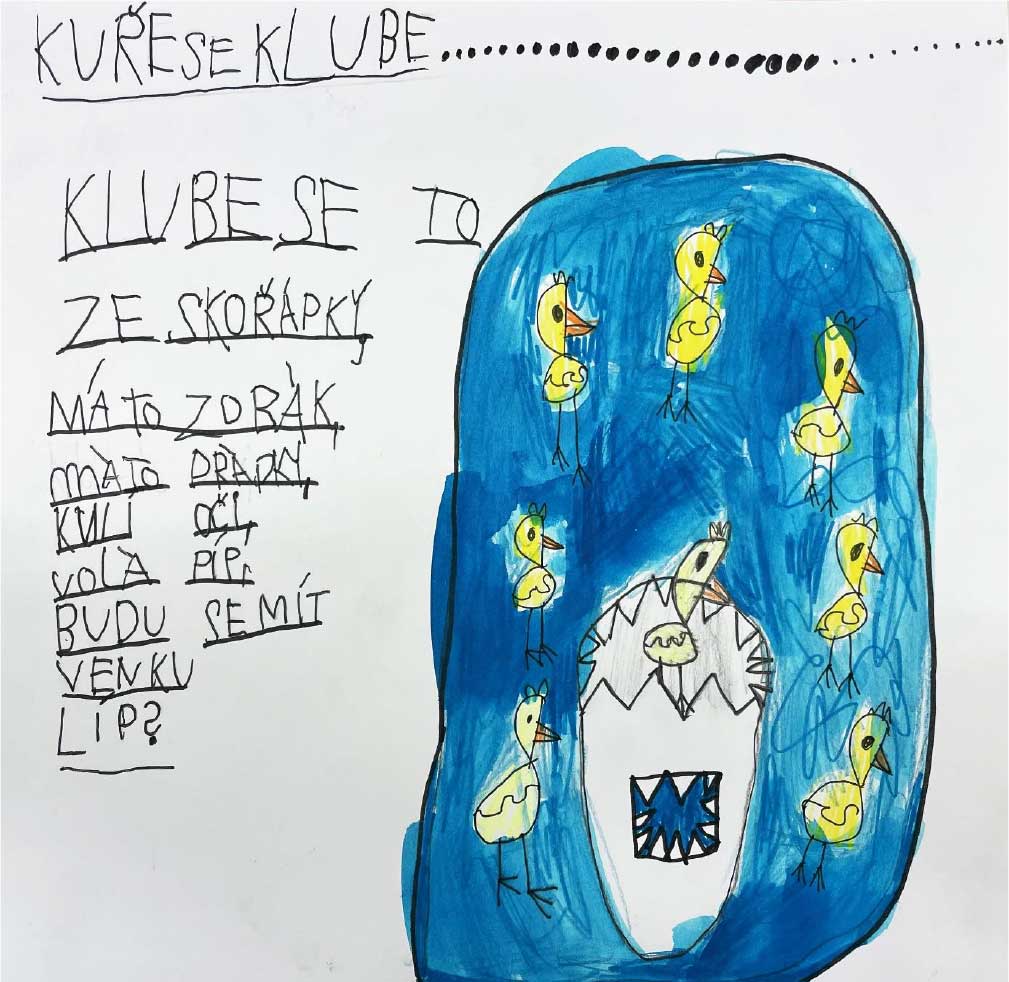 KUŘE SE KLUBE....................................
KLUBE SE TO
ZE SKOŘÁPKY,
MÁ TO ZOBÁK,
MÁ TO DRÁPKY,
KULÍ OČI,
VOLÁ PÍP,
BUDU SE MÍT
VENKU
LÍP?